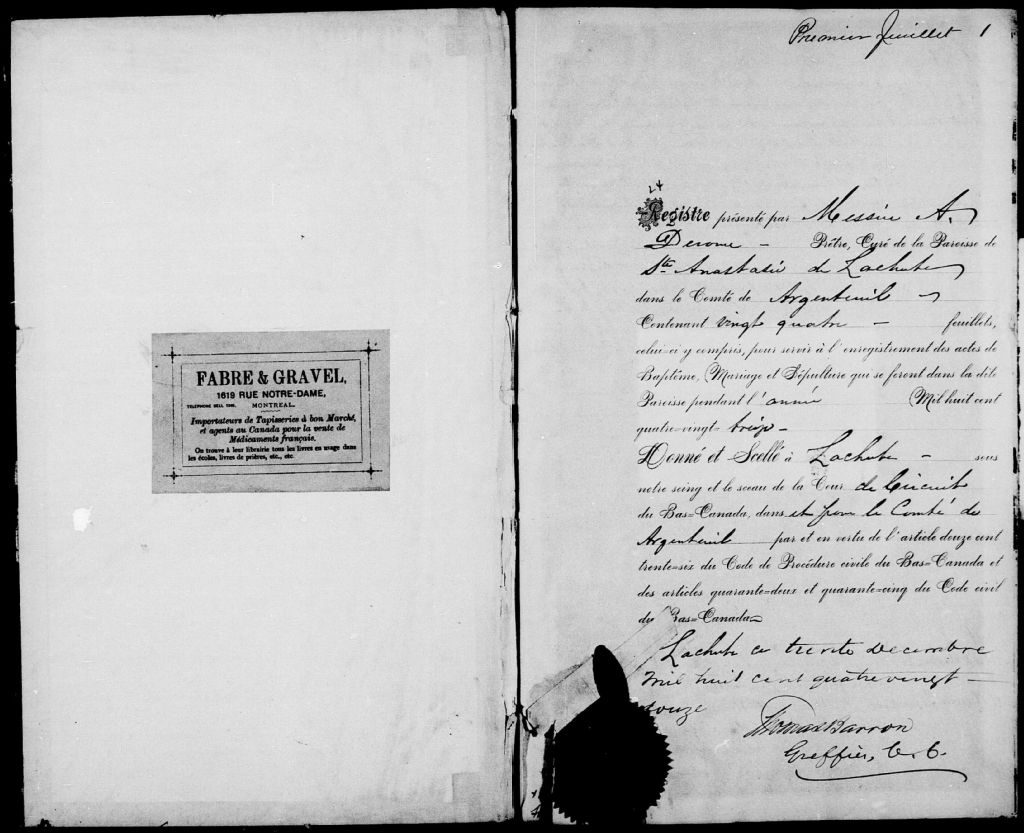 FABRE & GRAVEL,
1619 RUE NOTRE-DAME,
TELEPHONE BELL
MONTREAL.
Importateurs de Tapisseries à bon Marché,
et agents au Canada pour la vente de
Médicaments français.
On trouve à leur librairie tous les livres en usage dans
les écoles, livres de prières, etc., etc
Premier feuillet 1
24
Registre présenté par Messire A.
Derome – Prêtre, Curé de la Paroisse de
Ste Anastasie de Lachute
dans le Comté de Argenteuil –
Contenant vingt quatre – feuillets,
celui-ci y compris, pour servir à l'enregistrement des actes de
Baptême, Mariage et Sépulture qui se feront dans la dite
Paroisse pendant l'année Mil huit cent
quatre-vingt- treize –
Donné et Scellé à Lachute – sous
notre seing et le sceau de la Cour de Circuit
du Bas=Canada, dans et pour le Comté de
Argenteuil par et en vertu de l'article douze cent
trente=six du Code de Procédure civile du Bas=Canada et
des articles quarante=deux et quarante=cinq du Code civil
du Bas=Canada
Lachute ce trente decembre
mil huit cent quatre vingt –
douze
Thomas Barron
Greffier, C. C.